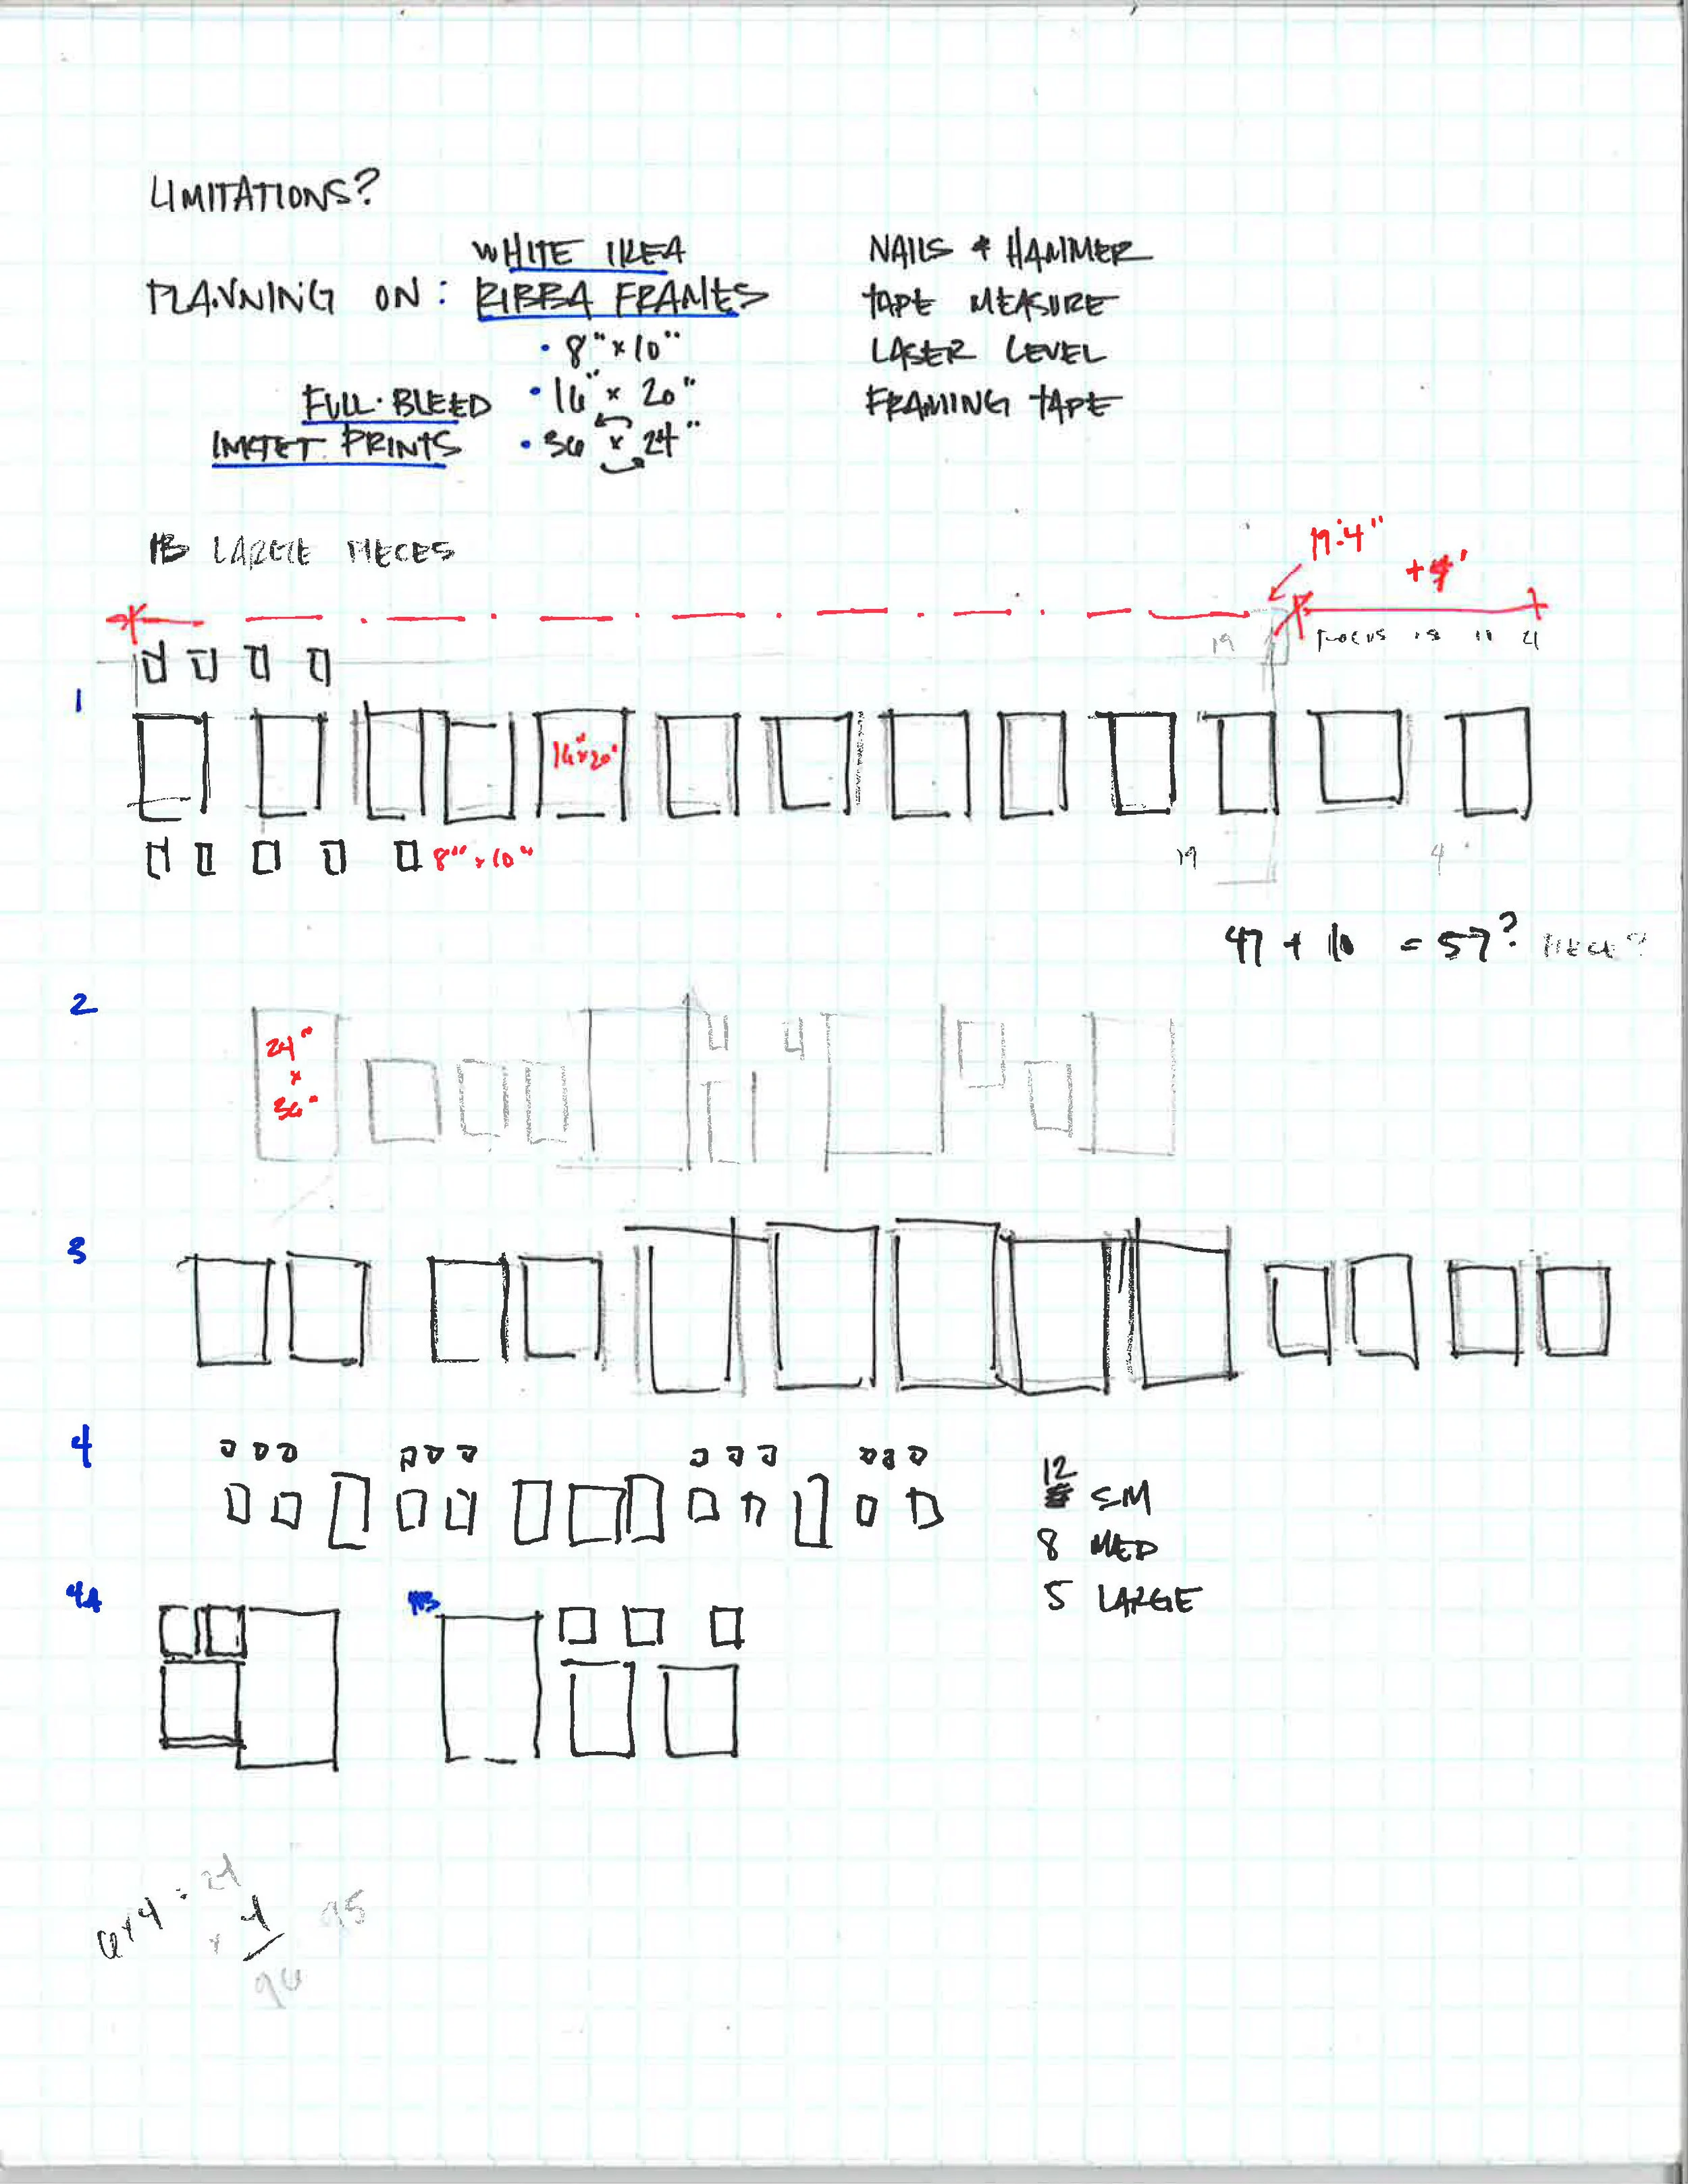 LIMITATIONS?
WHITE IKEA
PLANNING ON: RIBBA FRAMES
• 8" x 10"
FULL·BLEED • 16" x 20"
INKJET PRINTS • 36 x 24"
NAILS & HAMMER
TAPE MEASURE
LASER LEVEL
FRAMING TAPE
13 LARGE PIECES
19'·4"
+4'
19 FOCUS
1
16" x 20"
8" x 10"
19 4
47 + 10 = 57? PIECE?
2
24"
x
36"
3
4
12 SM
8 MED
5 LARGE
4A
6x4 = 24
x 4
96
95